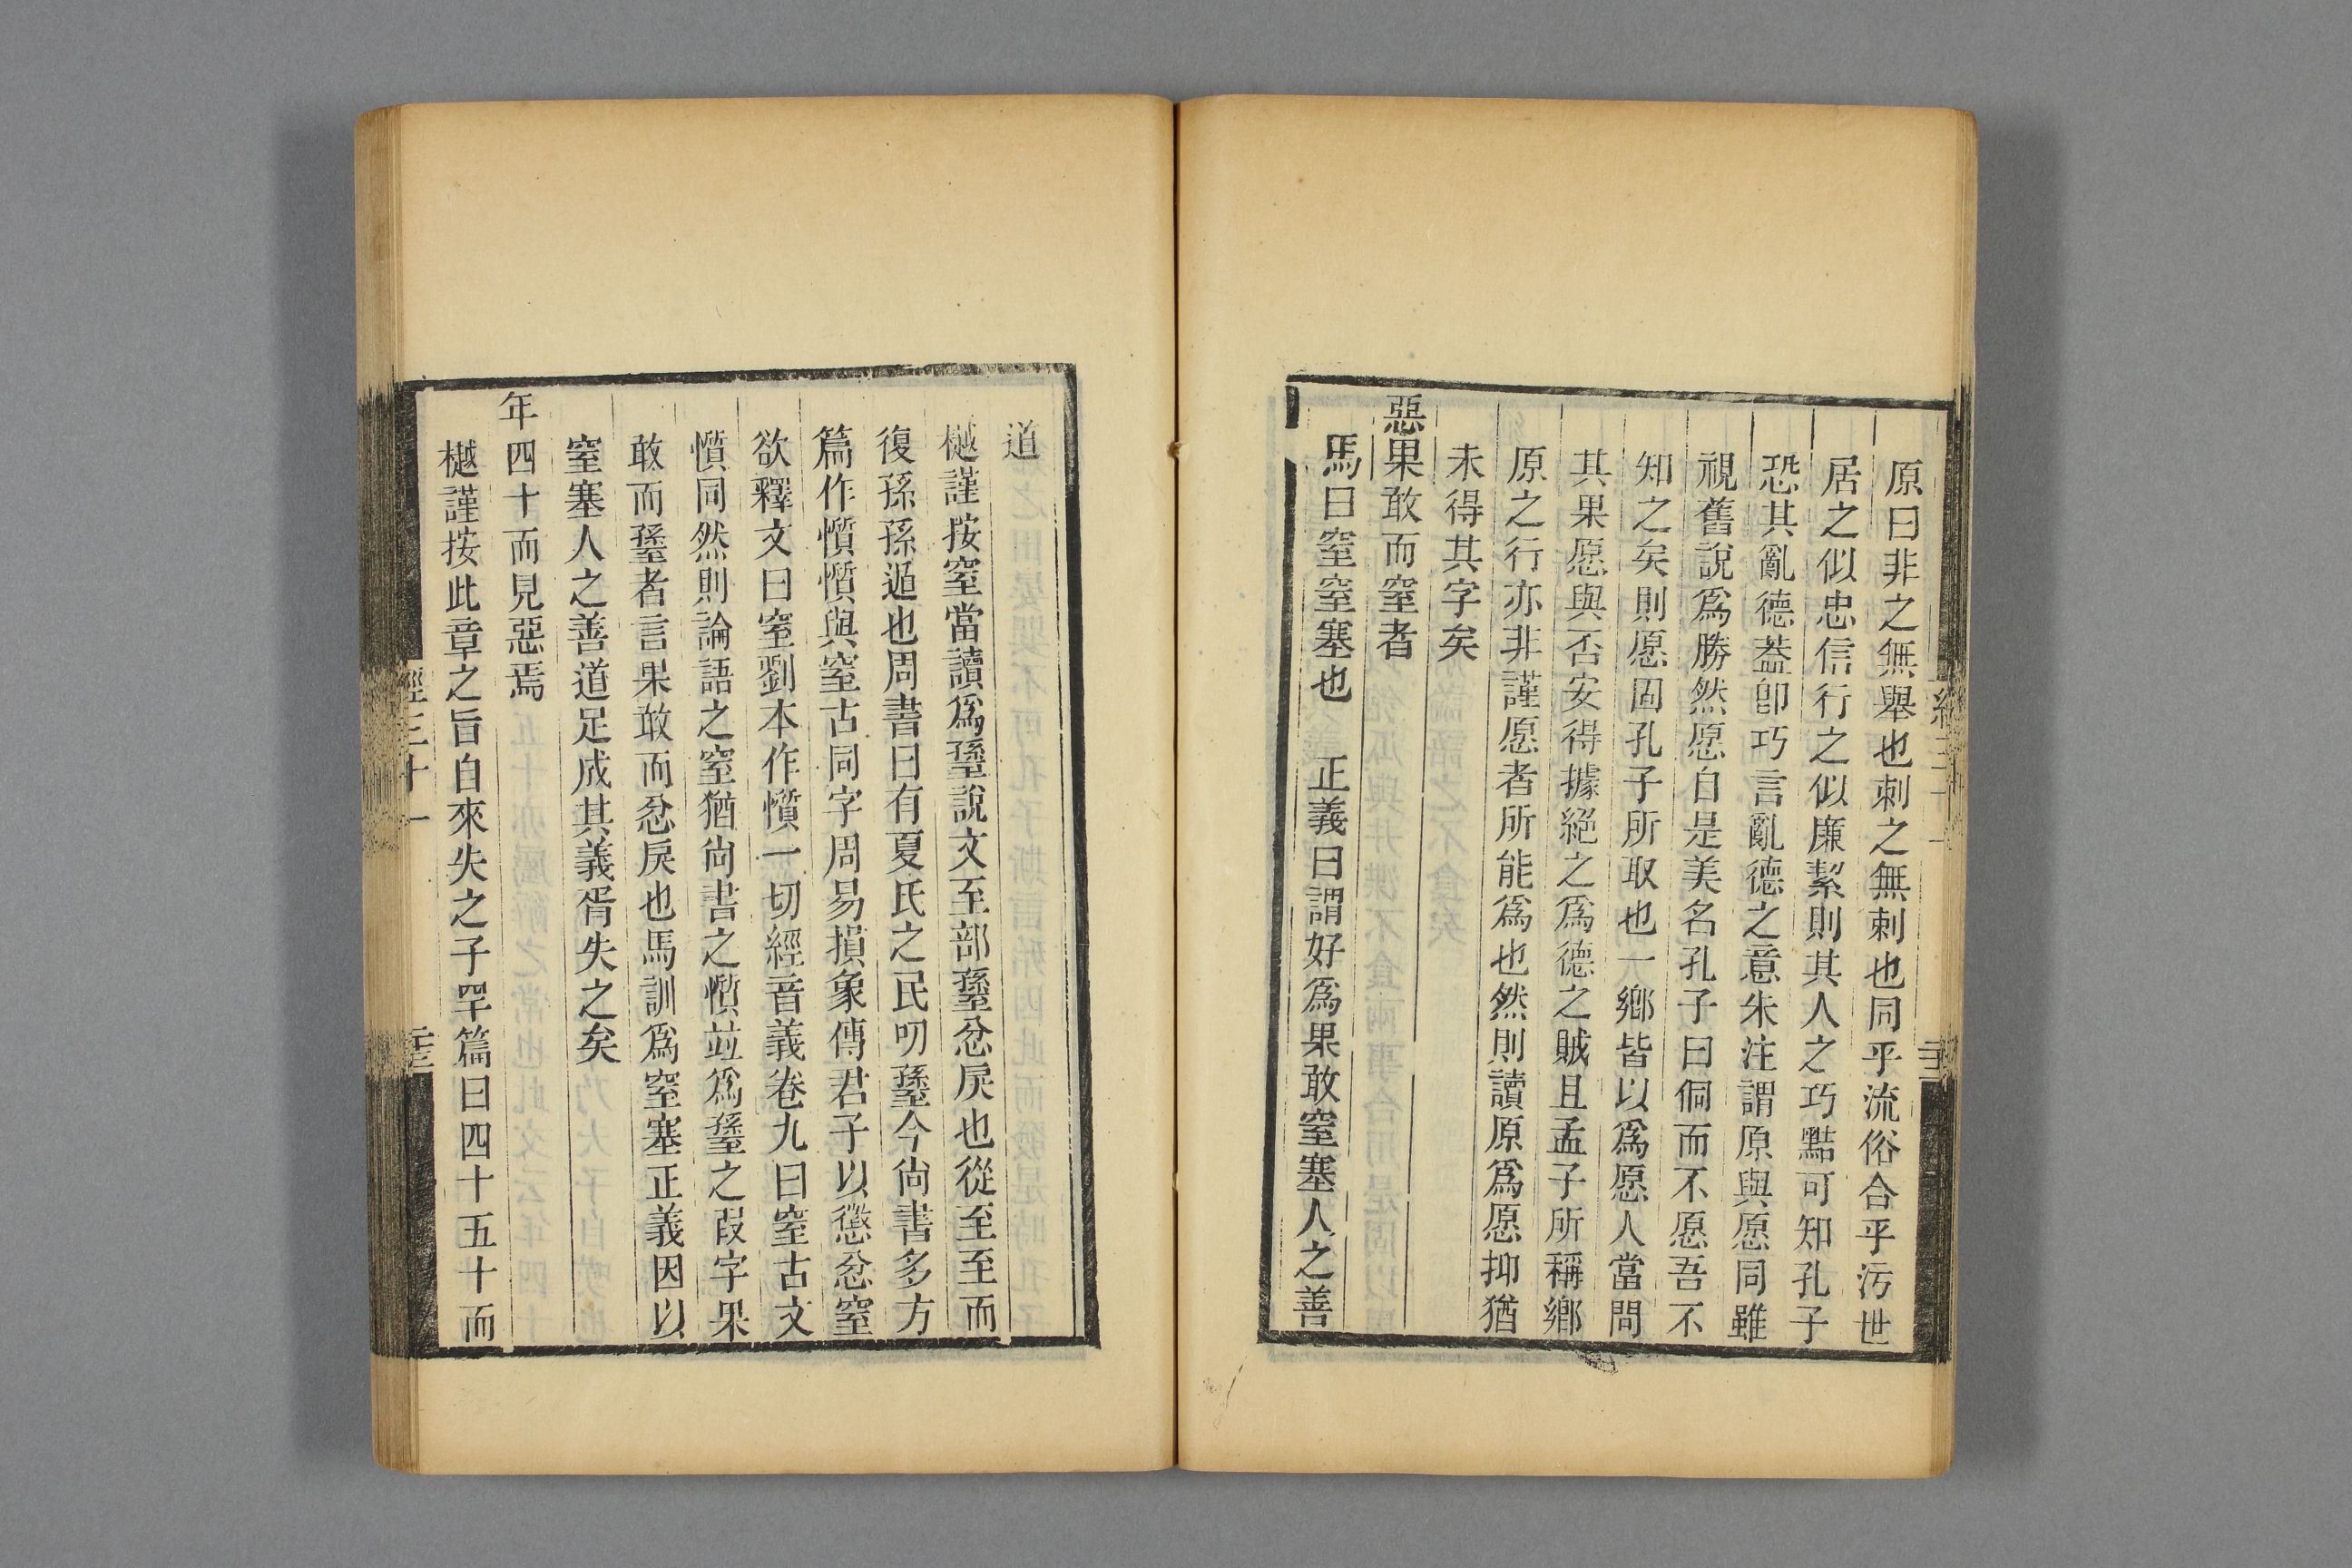 原曰非之無舉也刺之無刺也同乎流俗合乎污世
居之似忠信行之似廉絜則其人之巧黠可知孔子
恐其亂德葢卽巧言亂德之意朱注謂原與愿同雖
視舊說爲勝然愿自是美名孔子曰侗而不愿吾不
知之矣則愿固孔子所取也一鄉皆以爲愿人當問
其果愿與否安得據絕之爲德之賊且孟子所稱鄉
原之行亦非謹愿者所能爲也然則讀原爲愿抑猶
未得其字矣
惡果敢而窒者
馬曰窒窒塞也 正義曰謂好爲果敢窒塞人之善
道
樾謹按窒當讀爲𦥎說文至部𦥎忿戾也從至至而
復孫孫遁也周書曰有夏氏之民叨𦥎今尙書多方
篇作懫懫與窒古同字周易損象傳君子以懲忿窒
欲釋文曰窒劉本作懫一切經音義卷九曰窒古文
懫同然則論語之窒猶尙書之懫竝爲𦥎之叚字果
敢而𦥎者言果敢而忿戾也馬訓爲窒塞正義因以
窒塞人之善道足成其義胥失之矣
年四十而見惡焉
樾謹按此章之旨自來失之子罕篇曰四十五十而
經三十一